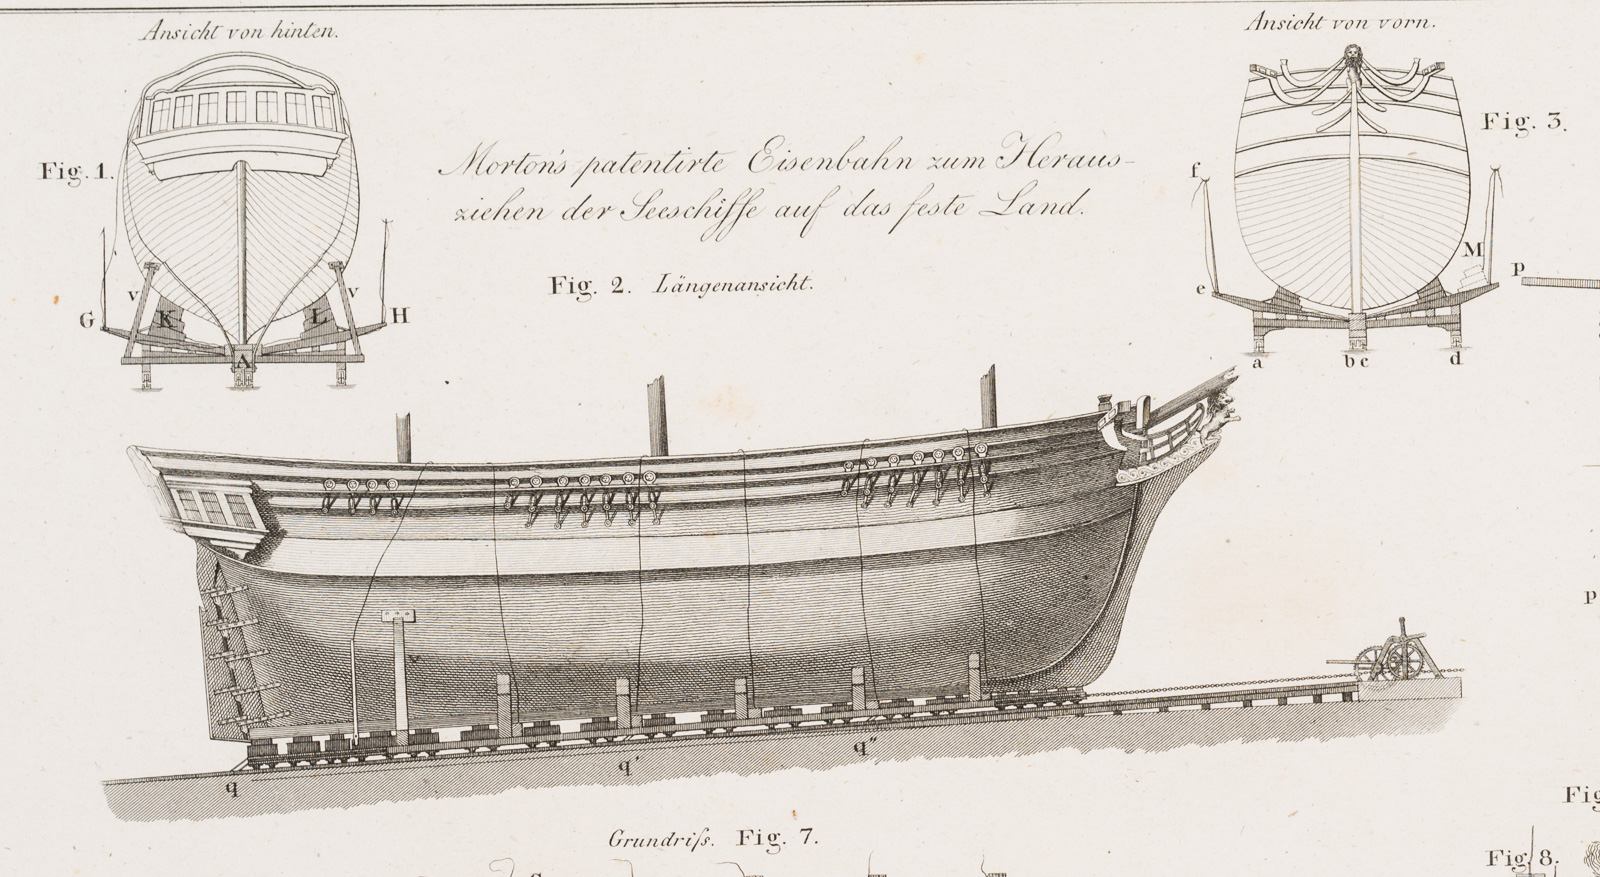 Ansicht von hinten.
Ansicht von vorn.
Fig. 1.
Fig. 3.
Morton's patentirte Eisenbahn zum Heraus-
ziehen der Seeschiffe auf das feste Land.
Fig. 2. Längenansicht.
f
M
p
e
v
v
G
K
L
H
A
a
b c
d
p
v
q
q'
q"
Grundriſs. Fig. 7.
Fig
Fig. 8.